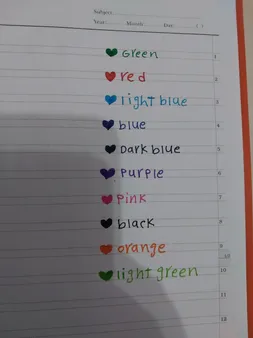 Subject:
Year: Month: Day:
GREEN 1
red 2
light blue 3
blue 4
Dark blue 5
PUrPle 6
Pink 7
black 8
orange 9
light green 10
11
12